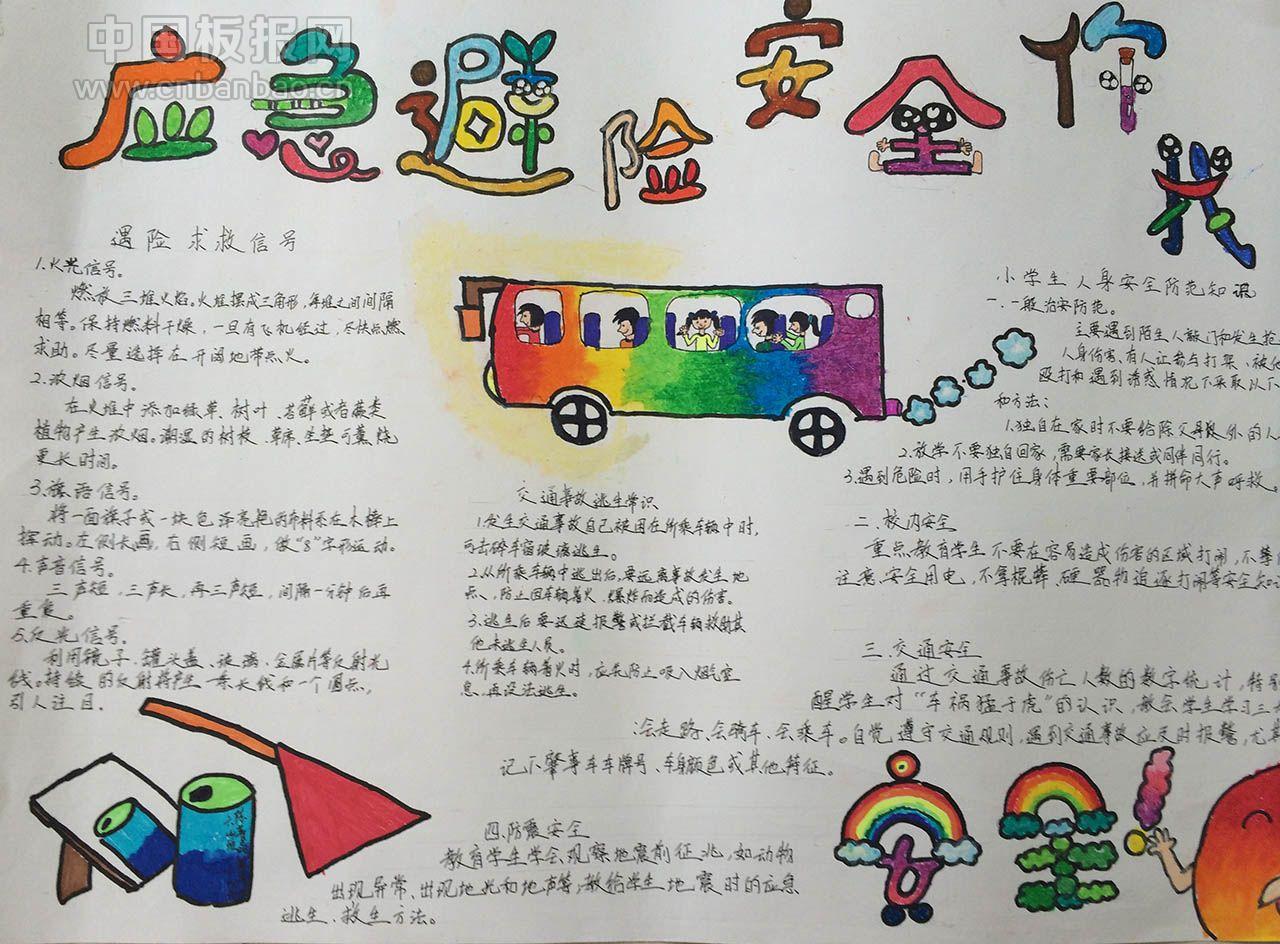 中国板报网
www.cnbanbao.cn
应急避险 安全你我
遇险求救信号
1.火光信号。
燃放三堆火焰。火堆摆成三角形,每堆之间间隔
相等。保持燃料干燥,一旦有飞机经过,尽快点燃
求助。尽量选择在开阔地带点火。
2.浓烟信号。
在火堆中添加绿草、树叶、苔藓或者蕨类
植物产生浓烟。潮湿的树枝、草席、坐垫可熏烧
更长时间。
3.旗语信号。
将一面旗子或一块色泽亮艳的布料系在木棒上
挥动。左侧长画,右侧短画,做"8"字形运动。
4.声音信号。
三声短,三声长,再三声短,间隔一分钟后再
重复。
5.反光信号。
利用镜子、罐头盖、玻璃、金属片等反射光
线。持续的反射将产生一条长线和一个圆点,
引人注目.
交通事故逃生常识
1.发生交通事故自己被困在所乘车辆中时,
可击碎车窗玻璃逃生。
2.从所乘车辆中逃出后,要远离事故发生地
点,防止因车辆着火、爆炸而造成的伤害。
3.逃生后要迅速报警或拦截车辆救助其
他未逃生人员。
4.所乘车辆着火时,应先防止吸入烟气窒
息,再设法逃生。
小学生人身安全防范知识
一.一般治安防范。
主要遇到陌生人敲门和发生抢
人身伤害,有人让参与打架、被他
殴打和遇到诱惑情况下采取以下
和方法:
1.独自在家时不要给除父母以外的人
2.放学不要独自回家,需要家长接送或同伴同行。
3.遇到危险时,用手护住身体重要部位,并拼命大声呼救。
二.校内安全
重点教育学生不要在容易造成伤害的区域打闹,不攀
注意安全用电,不拿棍棒、硬器物追逐打闹等安全知
三.交通安全
通过交通事故伤亡人数的数字统计,特别
醒学生对"车祸猛于虎"的认识,教会学生学习三
会走路、会骑车、会乘车。自觉遵守交通规则,遇到交通事故应及时报警,尤其
记下肇事车车牌号、车身颜色或其他特征。
四.防震安全
教育学生学会观察地震前征兆,如动物
出现异常、出现地光和地声等,教给学生地震时的应急
逃生、救生方法。
安全